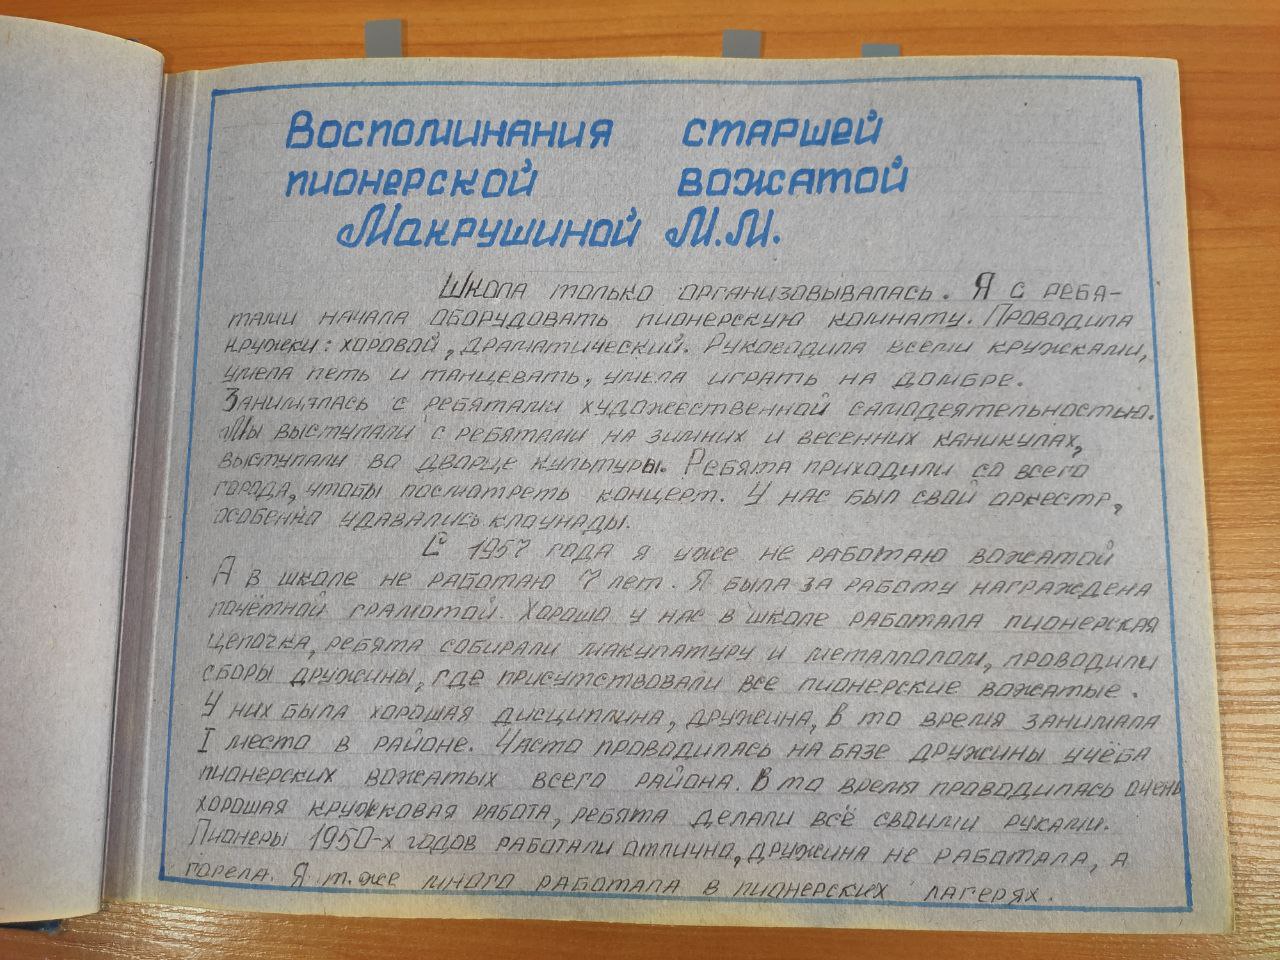 Воспоминания старшей
пионерской вожатой
Макрушиной М.М.
Школа только организовывалась. Я с ребя-
тами начала оборудовать пионерскую комнату. Проводила
кружки: хоровой, драматический. Руководила всеми кружками,
умела петь и танцевать, умела играть на домбре.
Занималась с ребятами художественной самодеятельностью.
Мы выступали с ребятами на зимних и весенних каникулах,
выступали во дворце культуры. Ребята приходили со всего
города, чтобы посмотреть концерт. У нас был свой оркестр,
особенно удавались клоунады.
С 1957 года я уже не работаю вожатой
А в школе не работаю 7 лет. Я была за работу награждена
почётной грамотой. Хорошо у нас в школе работала пионерская
цепочка, ребята собирали макулатуру и металлолом, проводили
сборы дружины, где присутствовали все пионерские вожатые.
У них была хорошая дисциплина, дружина, в то время занимала
I место в районе. Часто проводилась на базе дружины учёба
пионерских вожатых всего района. В то время проводилась очень
хорошая кружковая работа, ребята делали всё своими руками.
Пионеры 1950-х годов работали отлично, дружина не работала, а
горела. Я т.же много работала в пионерских лагерях.